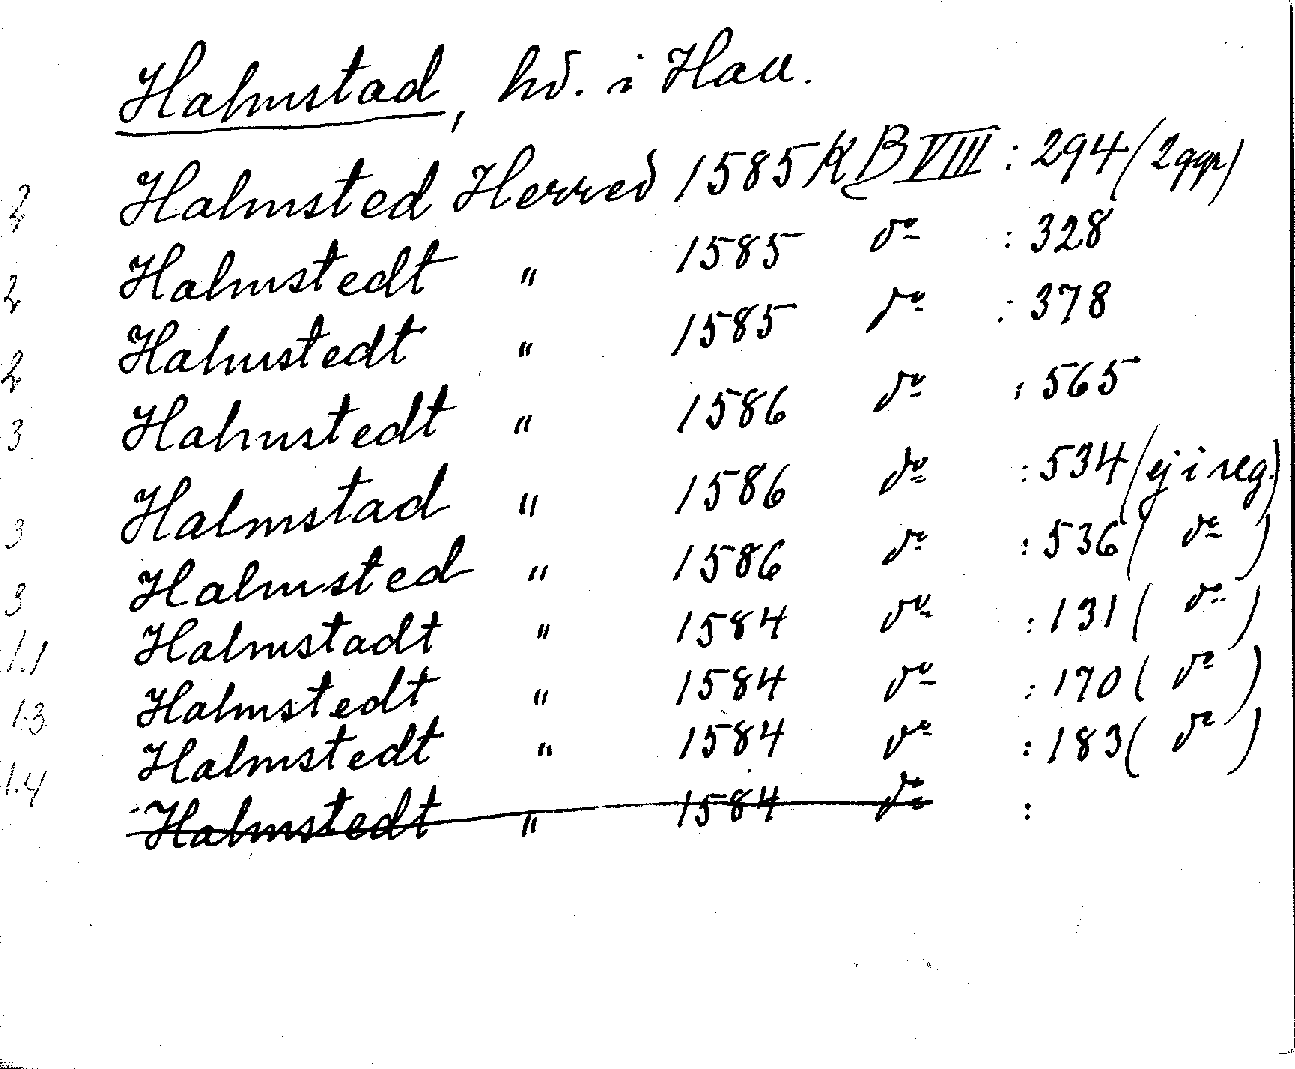 Halmstad, hd. i Hall.
2 Halmsted Herred 1585 KB VIII : 294 (2 ggr)
2 Halmstedt " 1585 do : 328
2 Halmstedt " 1585 do : 378
3 Halmstedt " 1586 do : 565
Halmstad " 1586 do : 534 (ej i reg.)
3 Halmsted " 1586 do : 536 ( do )
3 Halmstadt " 1584 do : 131 ( do )
1.1
Halmstedt " 1584 do : 170 ( do )
1.3 Halmstedt " 1584 do : 183 ( do )
1.4 Halmstedt " 1584 do :